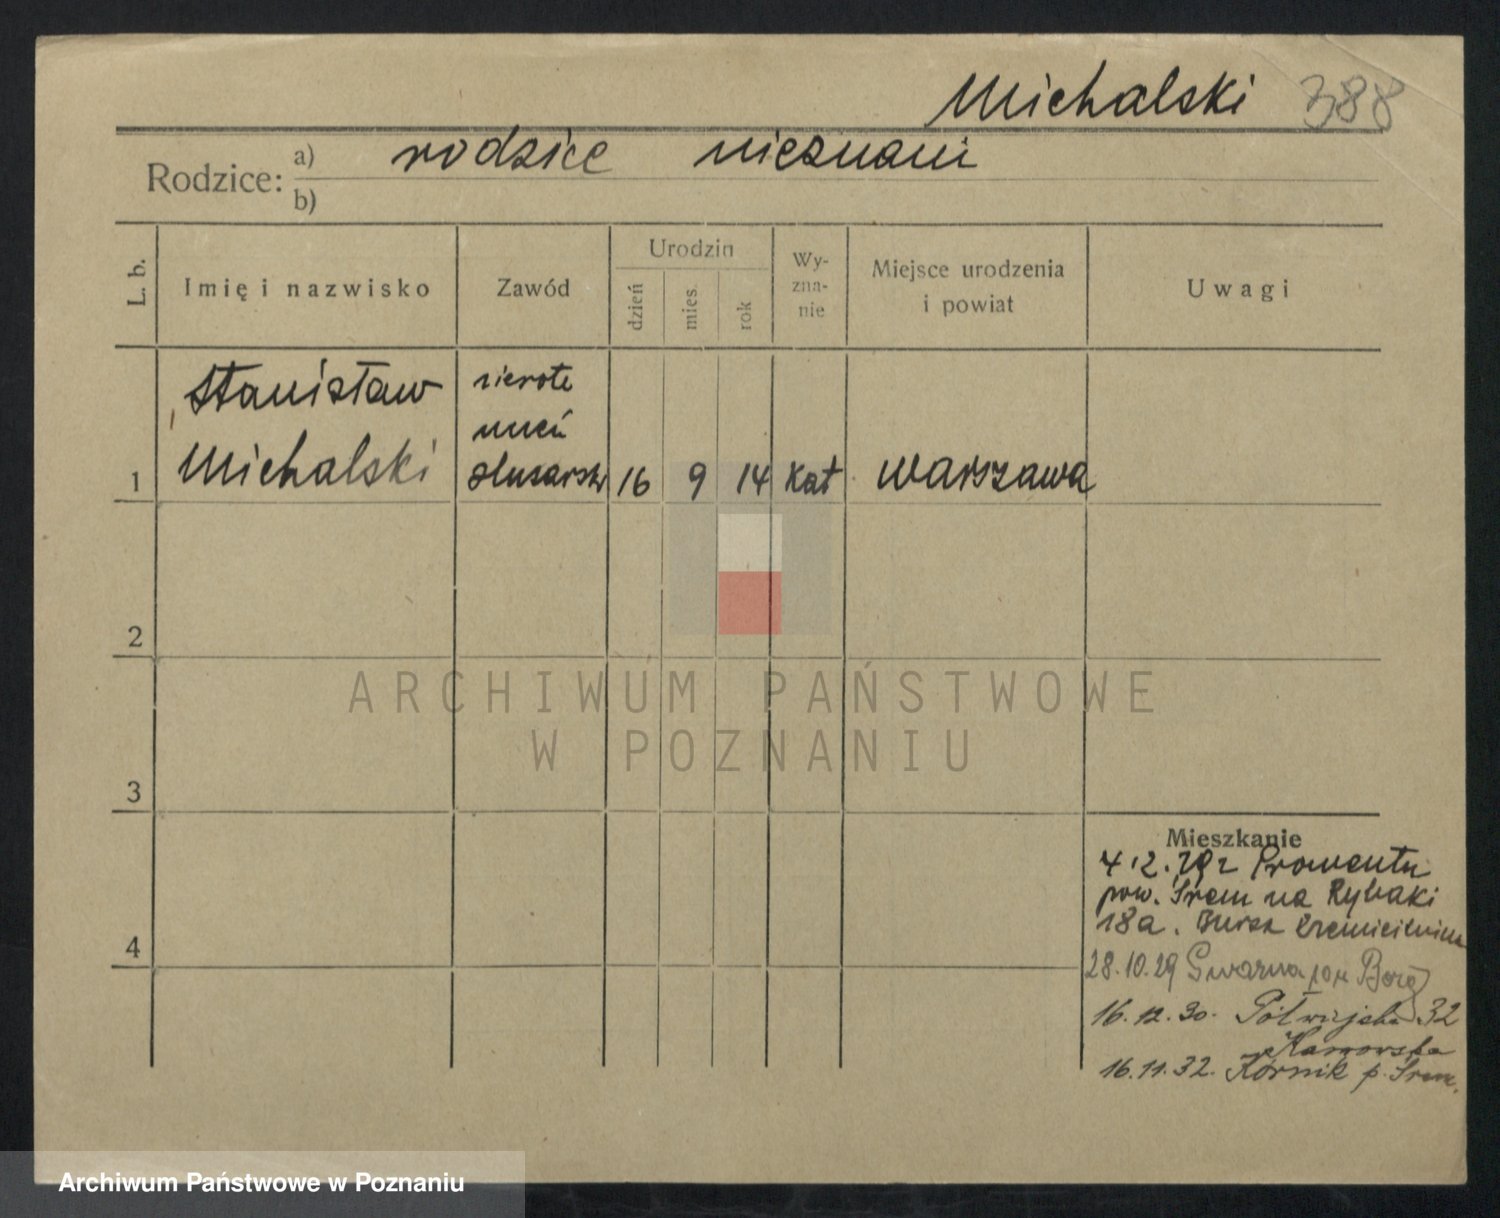 Michalski 388
Rodzice: a) rodzice nieznani
b)
L. b.
Imię i nazwisko
Zawód
Urodzin
dzień
mies.
rok
Wy-
zna-
nie
Miejsce urodzenia
i powiat
Uwagi
Stanisław
Michalski
sierota
uczeń
ślusarski
1
16 9 14 Kat Warszawa
2
ARCHIWUM PAŃSTWOWE
W POZNANIU
3
Mieszkanie
4.2.29 z
pow. Śrem na Rybaki
18a.
4
28.10.29 Gwarna
16.12.30. Półwiejska 32
16.11.32. Kórnik p. Śrem.
Archiwum Państwowe w Poznaniu